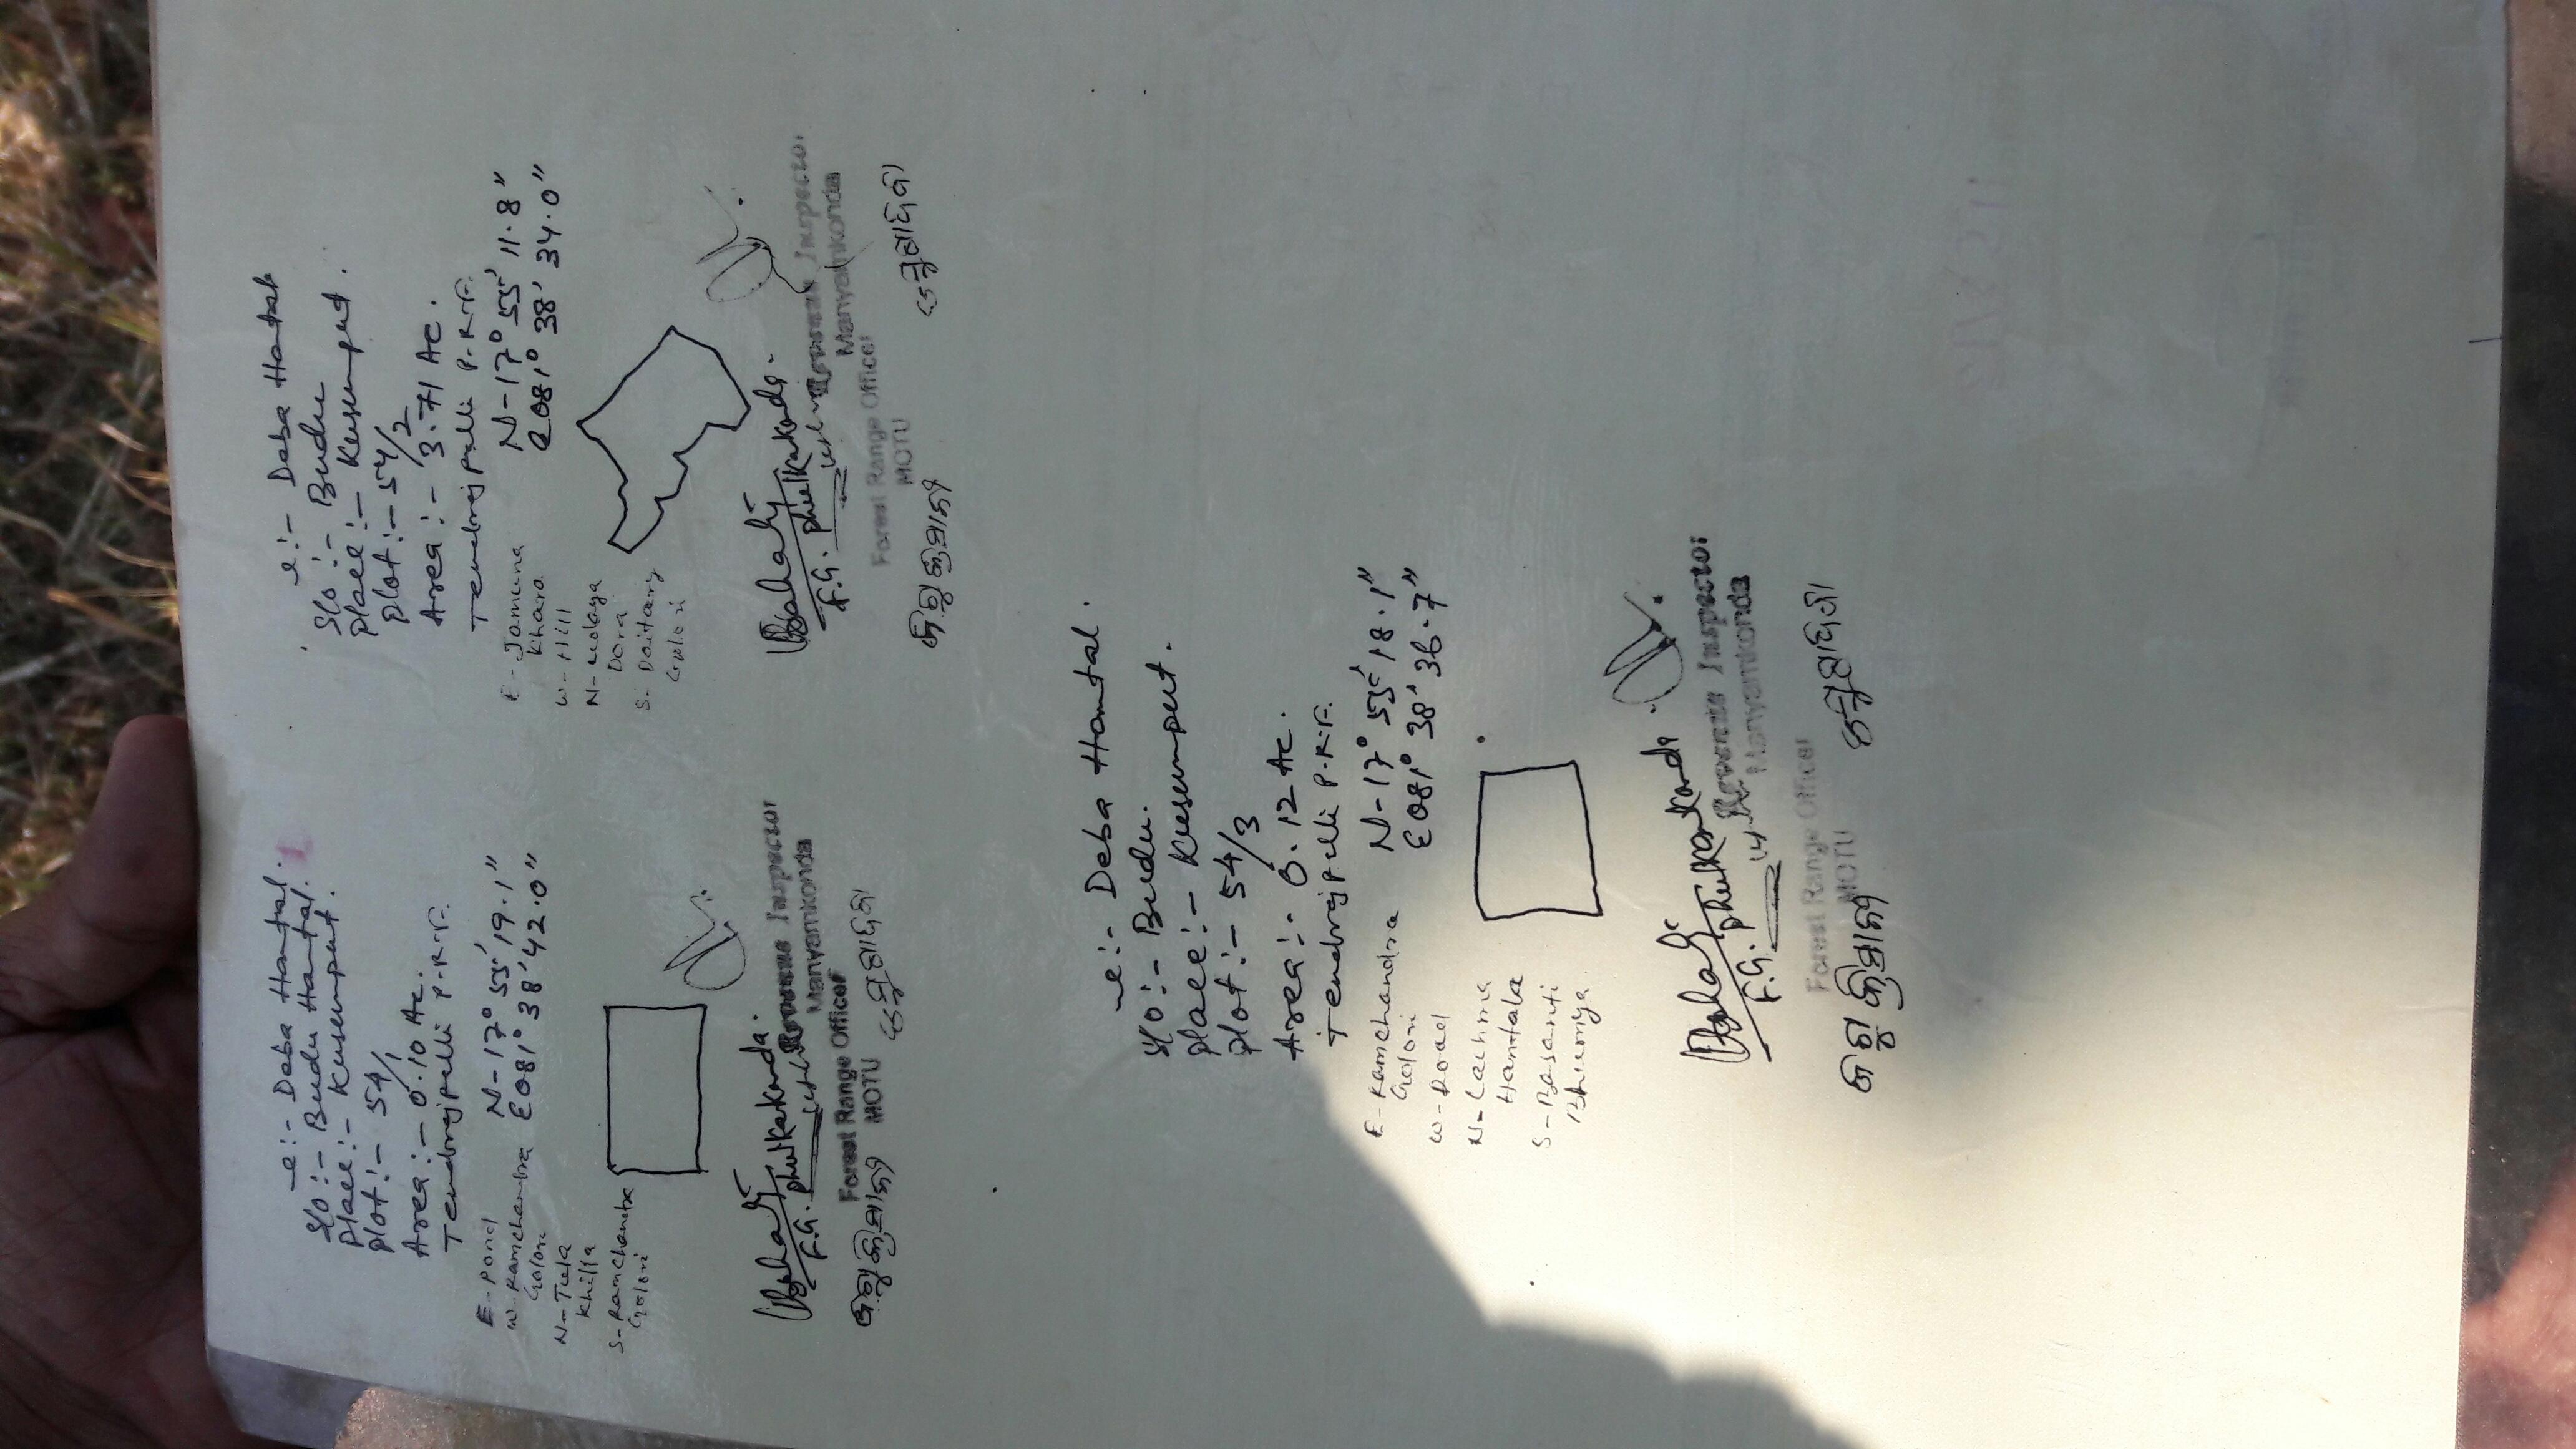 e:- Deba Hantal.
S/o:- Budu Hantal.
Place:- Kusumput.
Plot:- 54/1
Area:- 0.10 Ac.
Temdrajpalli P.R.F.
N-17° 55' 19.1"
E081° 38' 42.0"
E-Pond
W-Ramchandra
Golori
N-Tula
Khilla
S-Ramchandra
Golori
F.G. Phulkakonda.
Revenue Inspector
Manyamkonda
Forest Range Officer
MOTU
e:- Deba Hantal
S/o:- Budu
Place:- Kusumput.
Plot:- 54/2
Area:- 3.71 Ac.
Temdrajpalli P.R.F.
N-17° 55' 11.8"
E081° 38' 34.0"
E-Jamuna
Khara
W-Hill
N-Udaya
Dora
S-Daitary
Golori
F.G. Phulkakonda.
Revenue Inspector
Manyamkonda
Forest Range Officer
MOTU
e:- Deba Hantal.
S/o:- Budu.
Place:- Kusumput.
Plot:- 54/3
Area:- 0.12 Ac.
Temdrajpalli P.R.F.
N-17° 55' 18.1"
E081° 38' 36.7"
E-Ramchandra
Golori
W-Road
N-Lachma
Hantala
S-Basanti
Bhumya
F.G. Phulkakonda.
Revenue Inspector
Manyamkonda
Forest Range Officer
MOTU